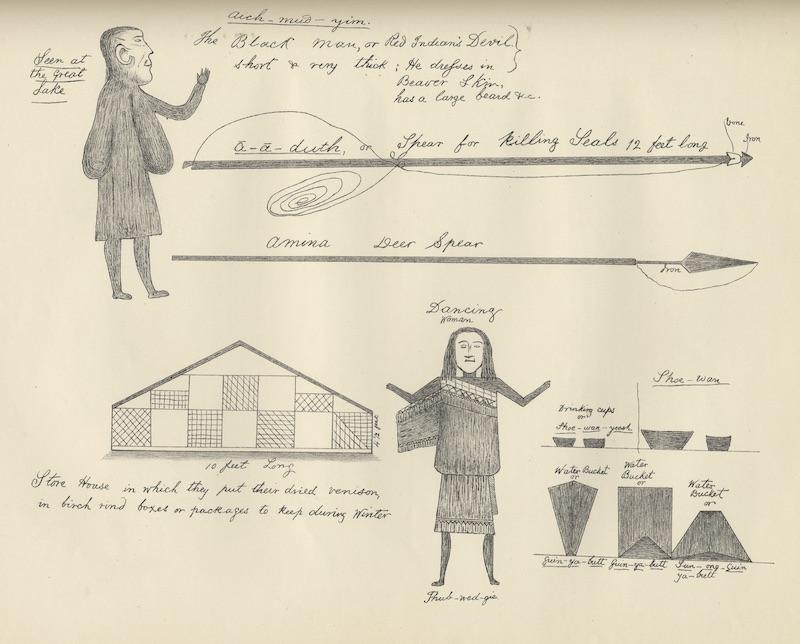 Aich-mud-yim.
The Black man, or Red Indian's Devil.
short & very thick; He dresses in
Beaver Skin,
has a large beard &c.
Seen at
the Great
Lake
a-a-duth, or Spear for Killing Seals 12 feet long
bone
Iron
Amina Deer Spear
Iron
Dancing
Woman
Thub-wed-gie
4½ feet
10 feet Long
Store House in which they put their dried venison,
in birch rind boxes or packages to keep during Winter
Shoe-wan
Drinking cups
or
Shoe-wan-yeesh
Water Bucket
or
Guin-ya-butt
Water
Bucket
or
Guin-ya-butt
Water
Bucket
or
Sun-ong-Guin
ya-butt